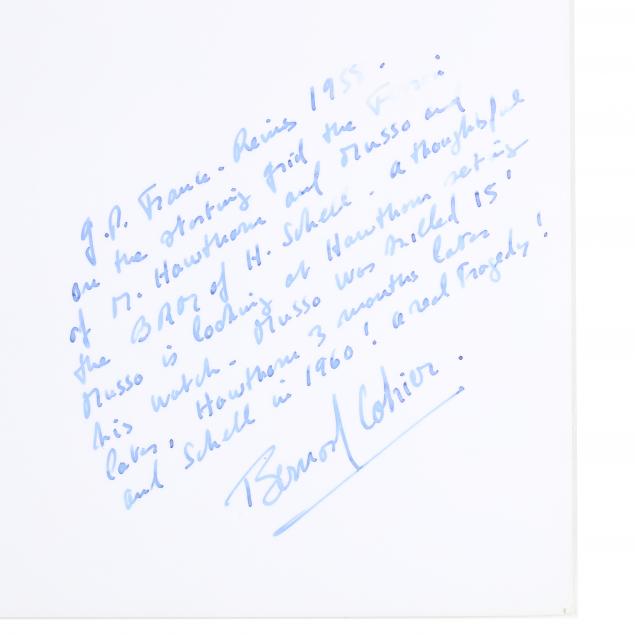 G.P. France. Reims 1955.
on the starting grid the Ferrari
of M. Hawthorn and Musso and
the BRM of H. Schell. a thoughtful
Musso is looking at Hawthorn seting
his watch. Musso was killed 15'
later, Hawthorn 3 months later
and Schell in 1960! a real Tragedy!
Bernard Cahier.